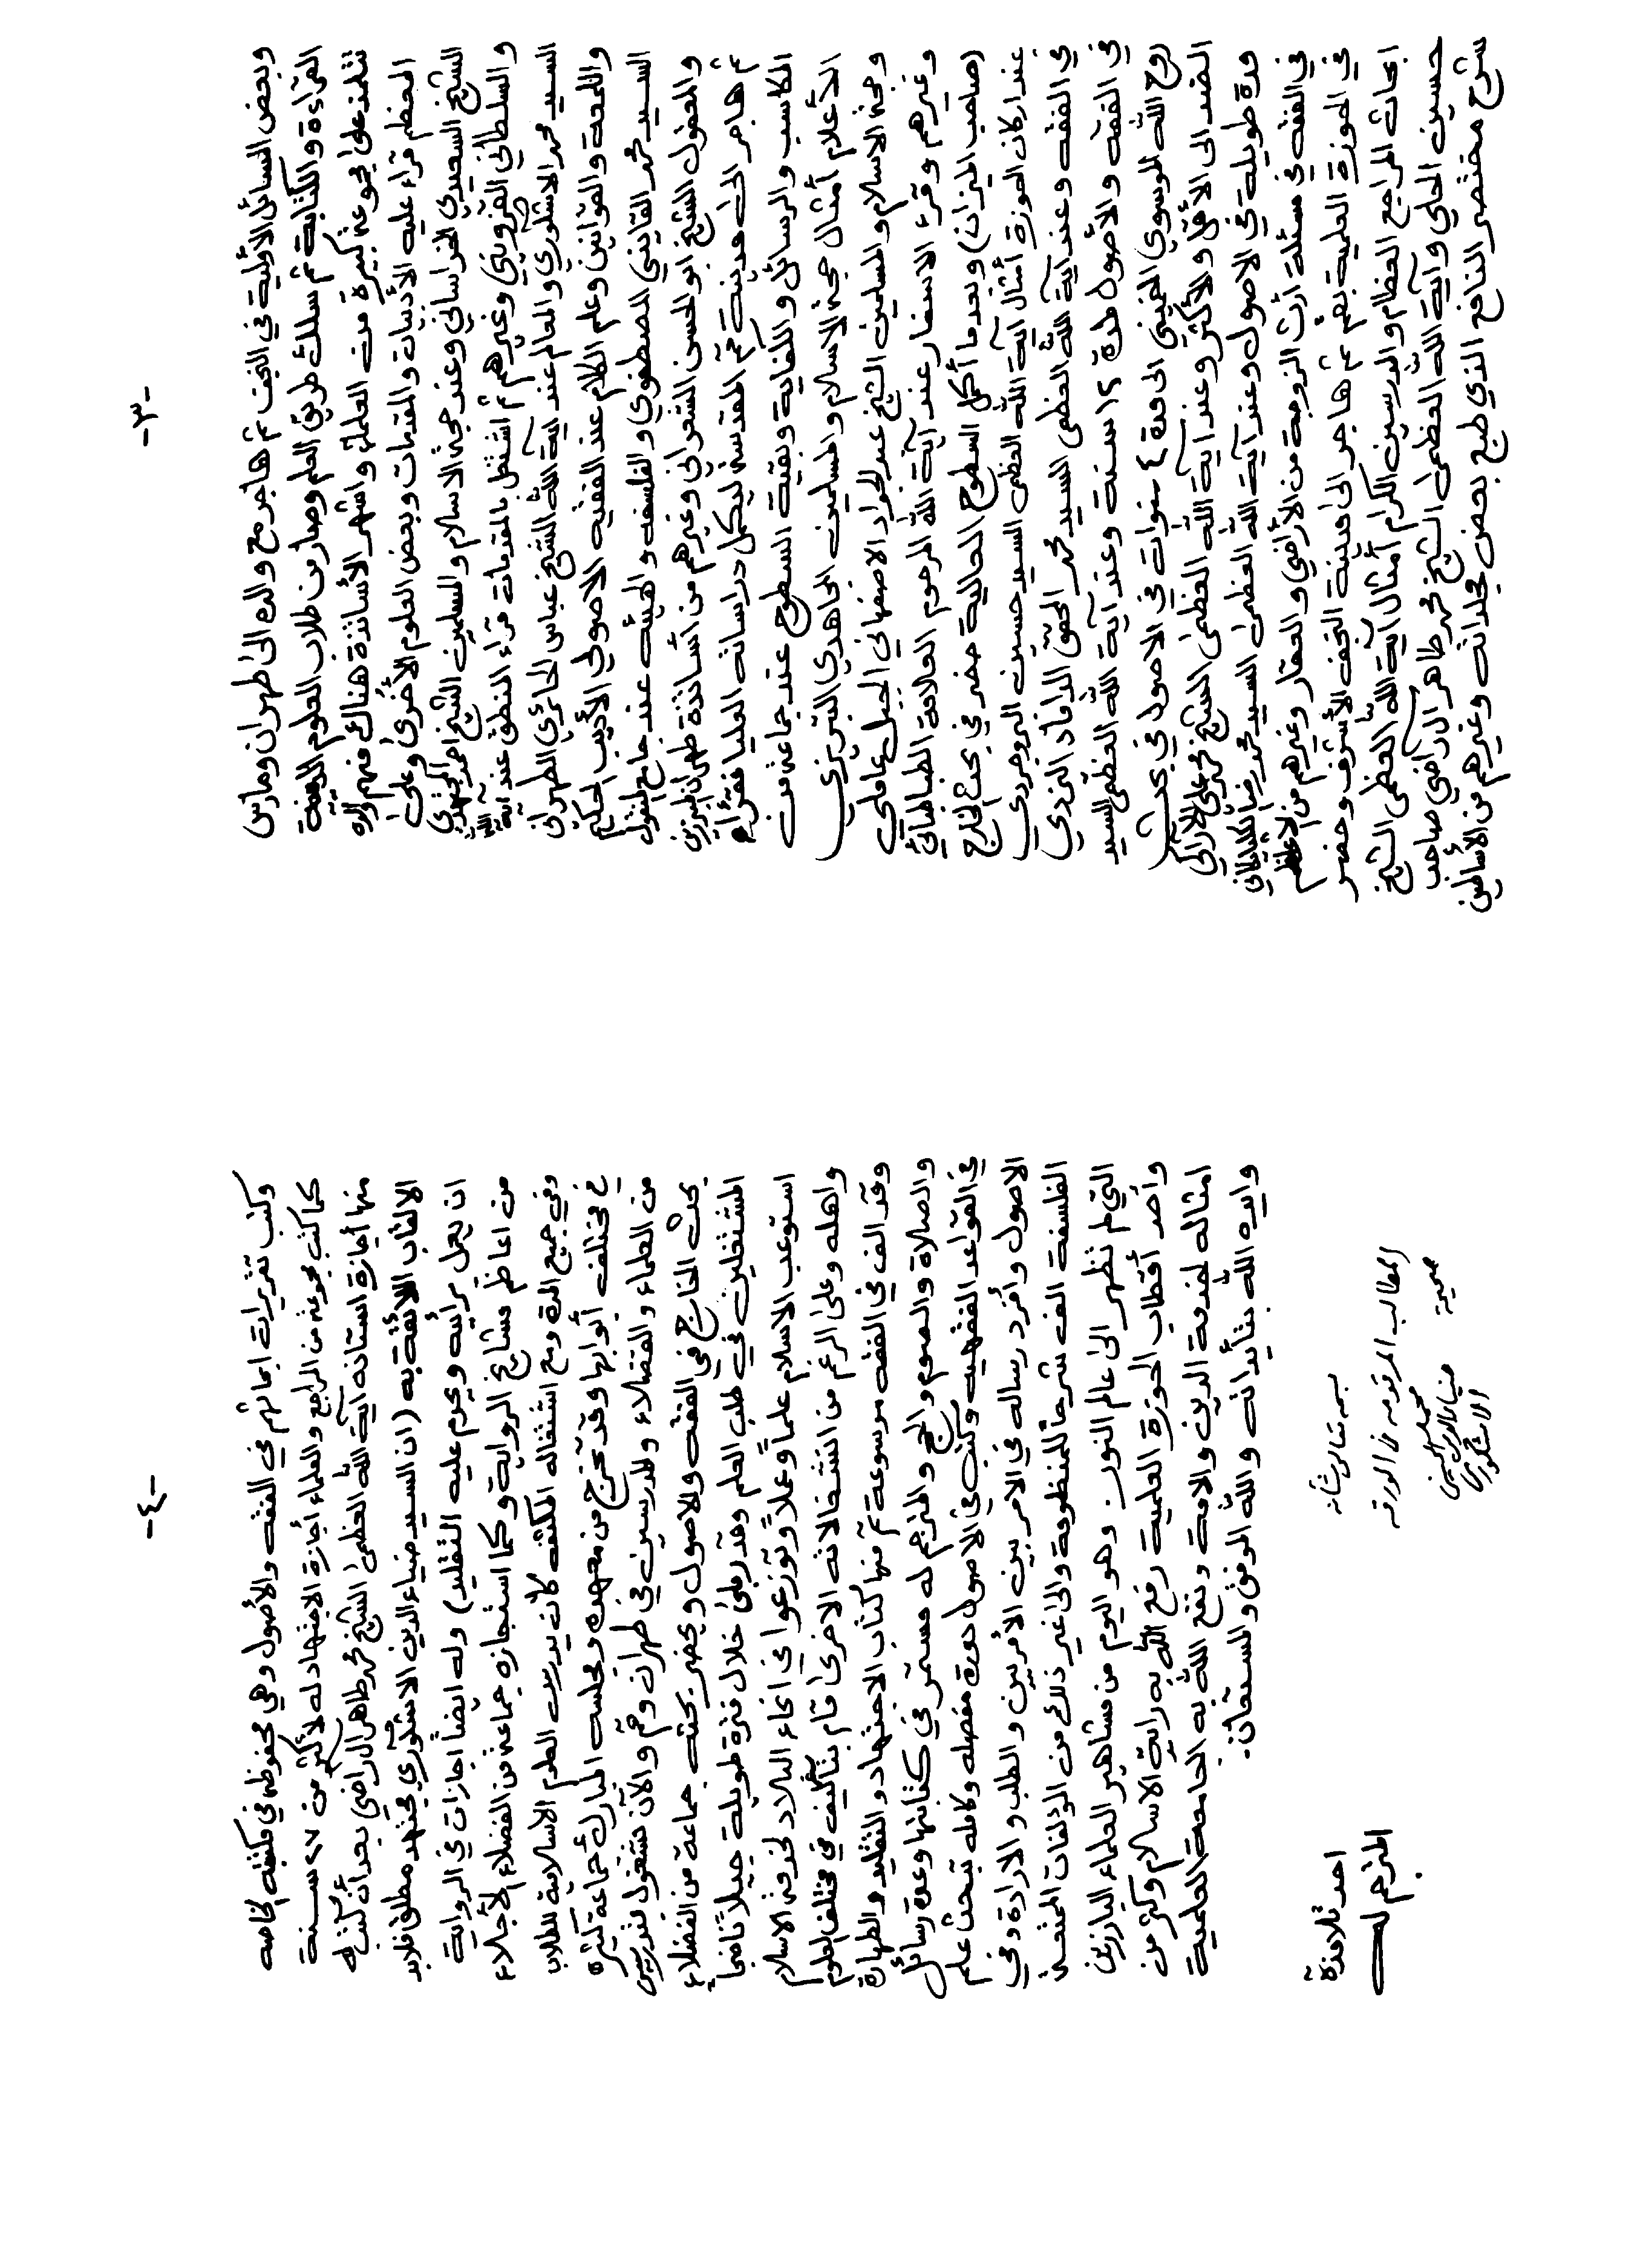 -٣-
وبعض السائل الأولية في النجف ثم هاجر مع والده الى طهران ومارس
القراءة والكتابة ثم سلك طريق العلم وصار من طلاب العلوم الدينية
تتلمذ على مجموعة كبيرة من العلماء واشهر الأساتذة هناك فمنهم والده
المعظم قراء عليه الأدبيات والمقدمات وبعض العلوم الأخرى وعلى
الشيخ السعيدي الخراساني وعند حجة الاسلام والمسلمين الشيخ احمد المجتهدي
والسلطاني القزويني وغيرهم ثم اشتغل بالمقدمات قراء المنطق عند آية الله
السيد محمد الاشكوري والمعالم عند آية الله الشيخ عباس الحائري الطهراني
واللمعة والقوانين وعلم الكلام عند الفقيه الاصولي الأديب الحكيم
السيد محمد القايني المصطفوي والفلسفه والهيئه عند جامع المنقول
والمعقول الشيخ ابو الحسن الشعراني وغيرهم من أساتذة طهران البارزين
ثم هاجر الى مدينة قم المقدسة ليكمل دراساته العليا فقراء
المكاسب والرسائل والكفاية وبقية السطوح عند جماعة من
الأعلام أمثال حجة الاسلام والمسلمين المجاهدي التبريزي
وحجة الاسلام والمسلمين الشيخ عبد الجواد الاصفهاني الجبل عاملي
وغيرهم وقرء الاسفار عند آية الله المرحوم العلامة الطباطبائي
(صاحب الميزان) وبعدما أكمل السطوح العالية حضر في بحث الخارج
عند اركان الحوزة أمثال آية الله العظمى السيد حسين البروجردي
في الفقه وعند آية الله العظمى السيد محمد المحقق الداماد اليزدي
في الفقه والأصول لمدة ١٢ سنة وعند آية الله العظمى السيد
روح الله الموسوي الخميني الى مدة ٤ سنوات في الاصول في بحث
الضد الى الأقل والأكثر وعند آية الله العظمى الشيخ محمد علي الاراكي
مدة طويلة في الاصول وعند آية الله العظمى السيد محمد رضا الگلپايگاني
في الفقه في مسئلة ارث الزوجة من الأراضي والعقار وغيرهم من الاعاظم
في الحوزة العلمية بقم ثم هاجر الى مدينة النجف الأشرف وحضر
ابحاث المراجع العظام والمدرسين الكرام أمثال آية الله العظمى الشيخ
حسين الحلي وآية الله العظمى الشيخ محمد طاهر آل راضي صاحب
شرح مختصر النافع الذي طبع بعض مجلداته وغيرهم من الأساطين
-٤-
وكتب تقريرات ابحاثهم في الفقه والأصول وهي محفوظة في مكتبته الخاصه
كما كتب مجموعة من المراجع والعلماء أجازة الاجتهاد له لأكثر من ٢٧ سنة
منها أجازة استاذه آية الله العظمى الشيخ محمد طاهر آل راضي بعد أن كتب له
الالقاب اللائقة به (ان السيد ضياء الدين الاشكوري مجتهد مطلق فلابد
ان يعمل برأيه ويحرم عليه التقليد) وله ايضاً اجازات في الرواية
من اعاظم مشايخ الرواية وكما استجازه جماعة من الفضلاء الأجلاء
وفي جميع المدة ومع اشتغاله المكثف كان يدرس العلوم الاسلامية للطلاب
في مختلف أبوابها وقد تخرج من معهده ومجلسه المبارك جماعة كثيره
من العلماء والفضلاء والمدرسين في طهران وقم والآن مشغول بتدريس
بحث الخارج في الفقه والاصول ويحضر بحثه جماعة من الفضلاء
المشتغلين في طلب العلم وقد ربى خلال فترة طويلة جيلاً ناضجاً
استوعب الاسلام علماً وعملاً وتوزعوا في انحاء البلاد لخدمة الاسلام
واهله وعلى الرغم من انشغالاته الاخرى قام بتأليف في مختلف العلوم
وقد الف في الفقه موسوعة تم منها كتاب الاجتهاد والتقليد والطهارة
والصلاة والصوم والحج والمترجم له مستمر في كتابتها وعدة رسائل
في القواعد الفقهيه وكتب في الاصول دورة مفصله وكامله تبحث علم
الاصول وأفرد رساله في الامر بين الأمرين والطلب والارادة وفي
الفلسفة الف شرحاً للمنظومة والى غير ذلك من المؤلفات الممتعة
التي لم تظهر الى عالم النور. وهو اليوم من مشاهير العلماء البارزين
وأحد أقطاب الحوزة العلمية رفع الله به راية الاسلام وكثر من
امثاله لخدمة الدين والامة ونفع الله به الجامعة العلمية
وايده الله بتأييداته والله الموفق والمستعان.
بسمه تعالى شانه
المطالب المرقومه في الورقه
صحيحة
محمد الحسيني
ضياء الدين
الاشكوري
احد تلامذة
المترجم له